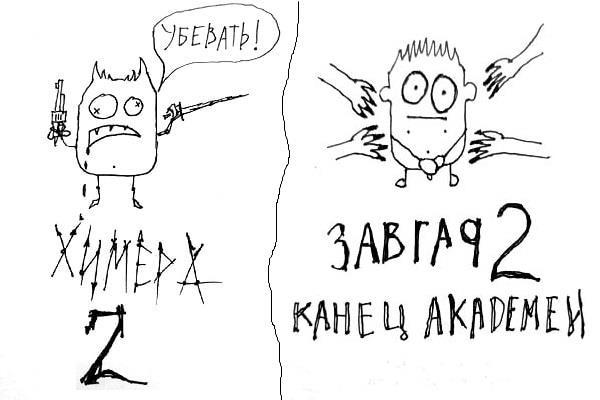 УБЕВАТЬ!
ХИМЕРА
2
ЗАВГАР 2
КАНЕЦ АКАДЕМЕИ